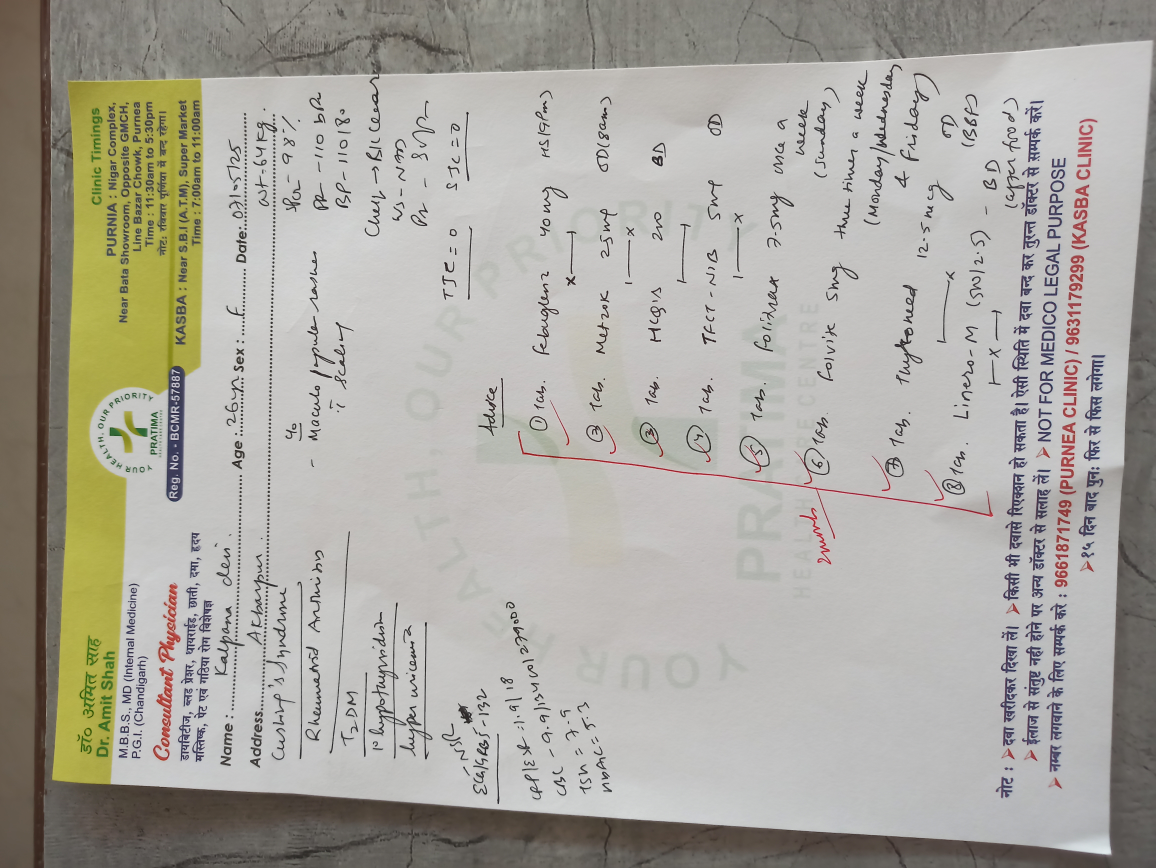 डॉ० अमित साह
Dr. Amit Shah
M.B.B.S., MD (Internal Medicine)
P.G.I. (Chandigarh)
Consultant Physician
डायबिटीज, ब्लड प्रेशर, थायराईड, छाती, दमा, हृदय
मस्तिष्क, पेट एवं गठिया रोग विशेषज्ञ
YOUR HEALTH, OUR PRIORITY
PRATIMA
Reg. No. - BCMR-57887
Clinic Timings
PURNIA : Nigar Complex,
Near Bata Showroom, Opposite GMCH,
Line Bazar Chowk, Purnea
Time : 11:30am to 5:30pm
नोट: रविवार पूर्णिया में बन्द रहेगा।
KASBA : Near S.B.I (A.T.M), Super Market
Time : 7:00am to 11:00am
Name : Kalpana devi Age : 26yrs Sex : F Date: 07/05/25
Address Akbarpur
wt-64kg.
Cushing's syndrome
Rheumatoid Arthritis
T2DM
1° hypothyroidism
hyperuricemia
c/o
- Maculo papular rashes
c̅ scaling
SPO2 - 98%
PR - 110 bpm
BP - 110/80
Chest → B/L clear
TJC = 0 SJC = 0
ECG - NSR
GRBS - 132
CRP/ESR - 1.9/18
TSH = 7.9
HbA1C = 5.3
Advice
① Tab. Febuget 40mg HS (9pm)
② Tab. Metzok 25mg OD (8am)
③ Tab. HCQS 200 BD
④ Tab. TFCT-NIB 5mg OD
⑤ Tab. Folitrax 7.5mg once a
week
(Sunday)
⑥ Tab. Folvite 5mg three times a week
(Monday/Wednesday
& Friday)
⑦ Tab. Thyroneed 12.5mcg OD
(BBF)
⑧ Tab. Linero-M (500/2.5) - BD
(after food)
YOUR HEALTH, OUR PRIORITY
PRATIMA
HEALTHCARE CENTRE
नोट : ➤ दवा खरीदकर दिखा लें। ➤ किसी भी दवासे रिएक्शन हो सकता है। ऐसी स्थिति में दवा बन्द कर तुरन्त डॉक्टर से सम्पर्क करें।
➤ ईलाज से संतुष्ट नही होने पर अन्य डॉक्टर से सलाह लें। ➤ NOT FOR MEDICO LEGAL PURPOSE
➤ नम्बर लगाबाने के लिए सम्पर्क करे : 9661871749 (PURNEA CLINIC) / 9631179299 (KASBA CLINIC)
➤ १५ दिन बाद पुन: फिर से फिस लगेगा।